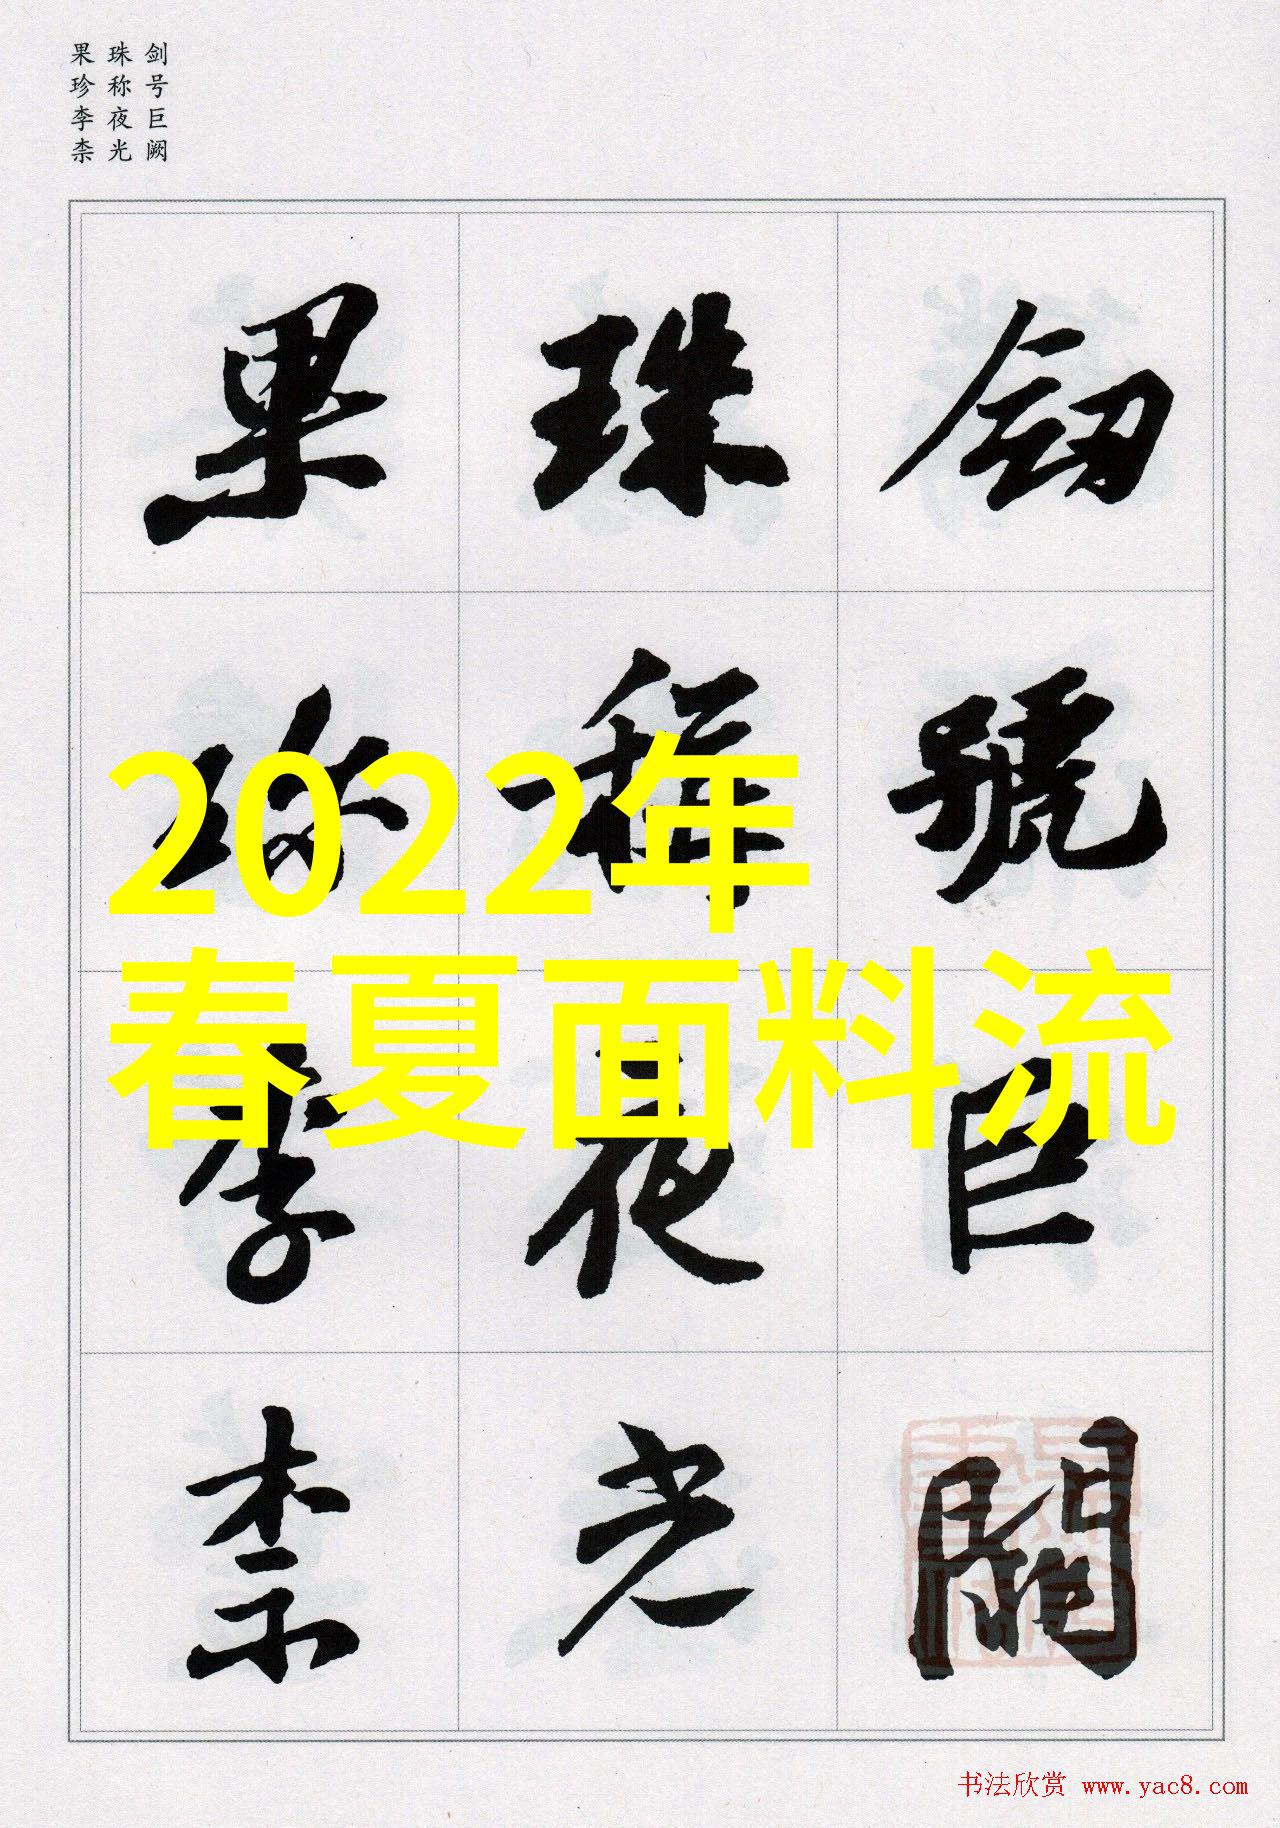 剑号巨阙
珠称夜光
果珍李柰
劒號巨闕
珠稱夜光
果珎李柰
2022年
春夏面料流
书法欣赏 www.yac8.com